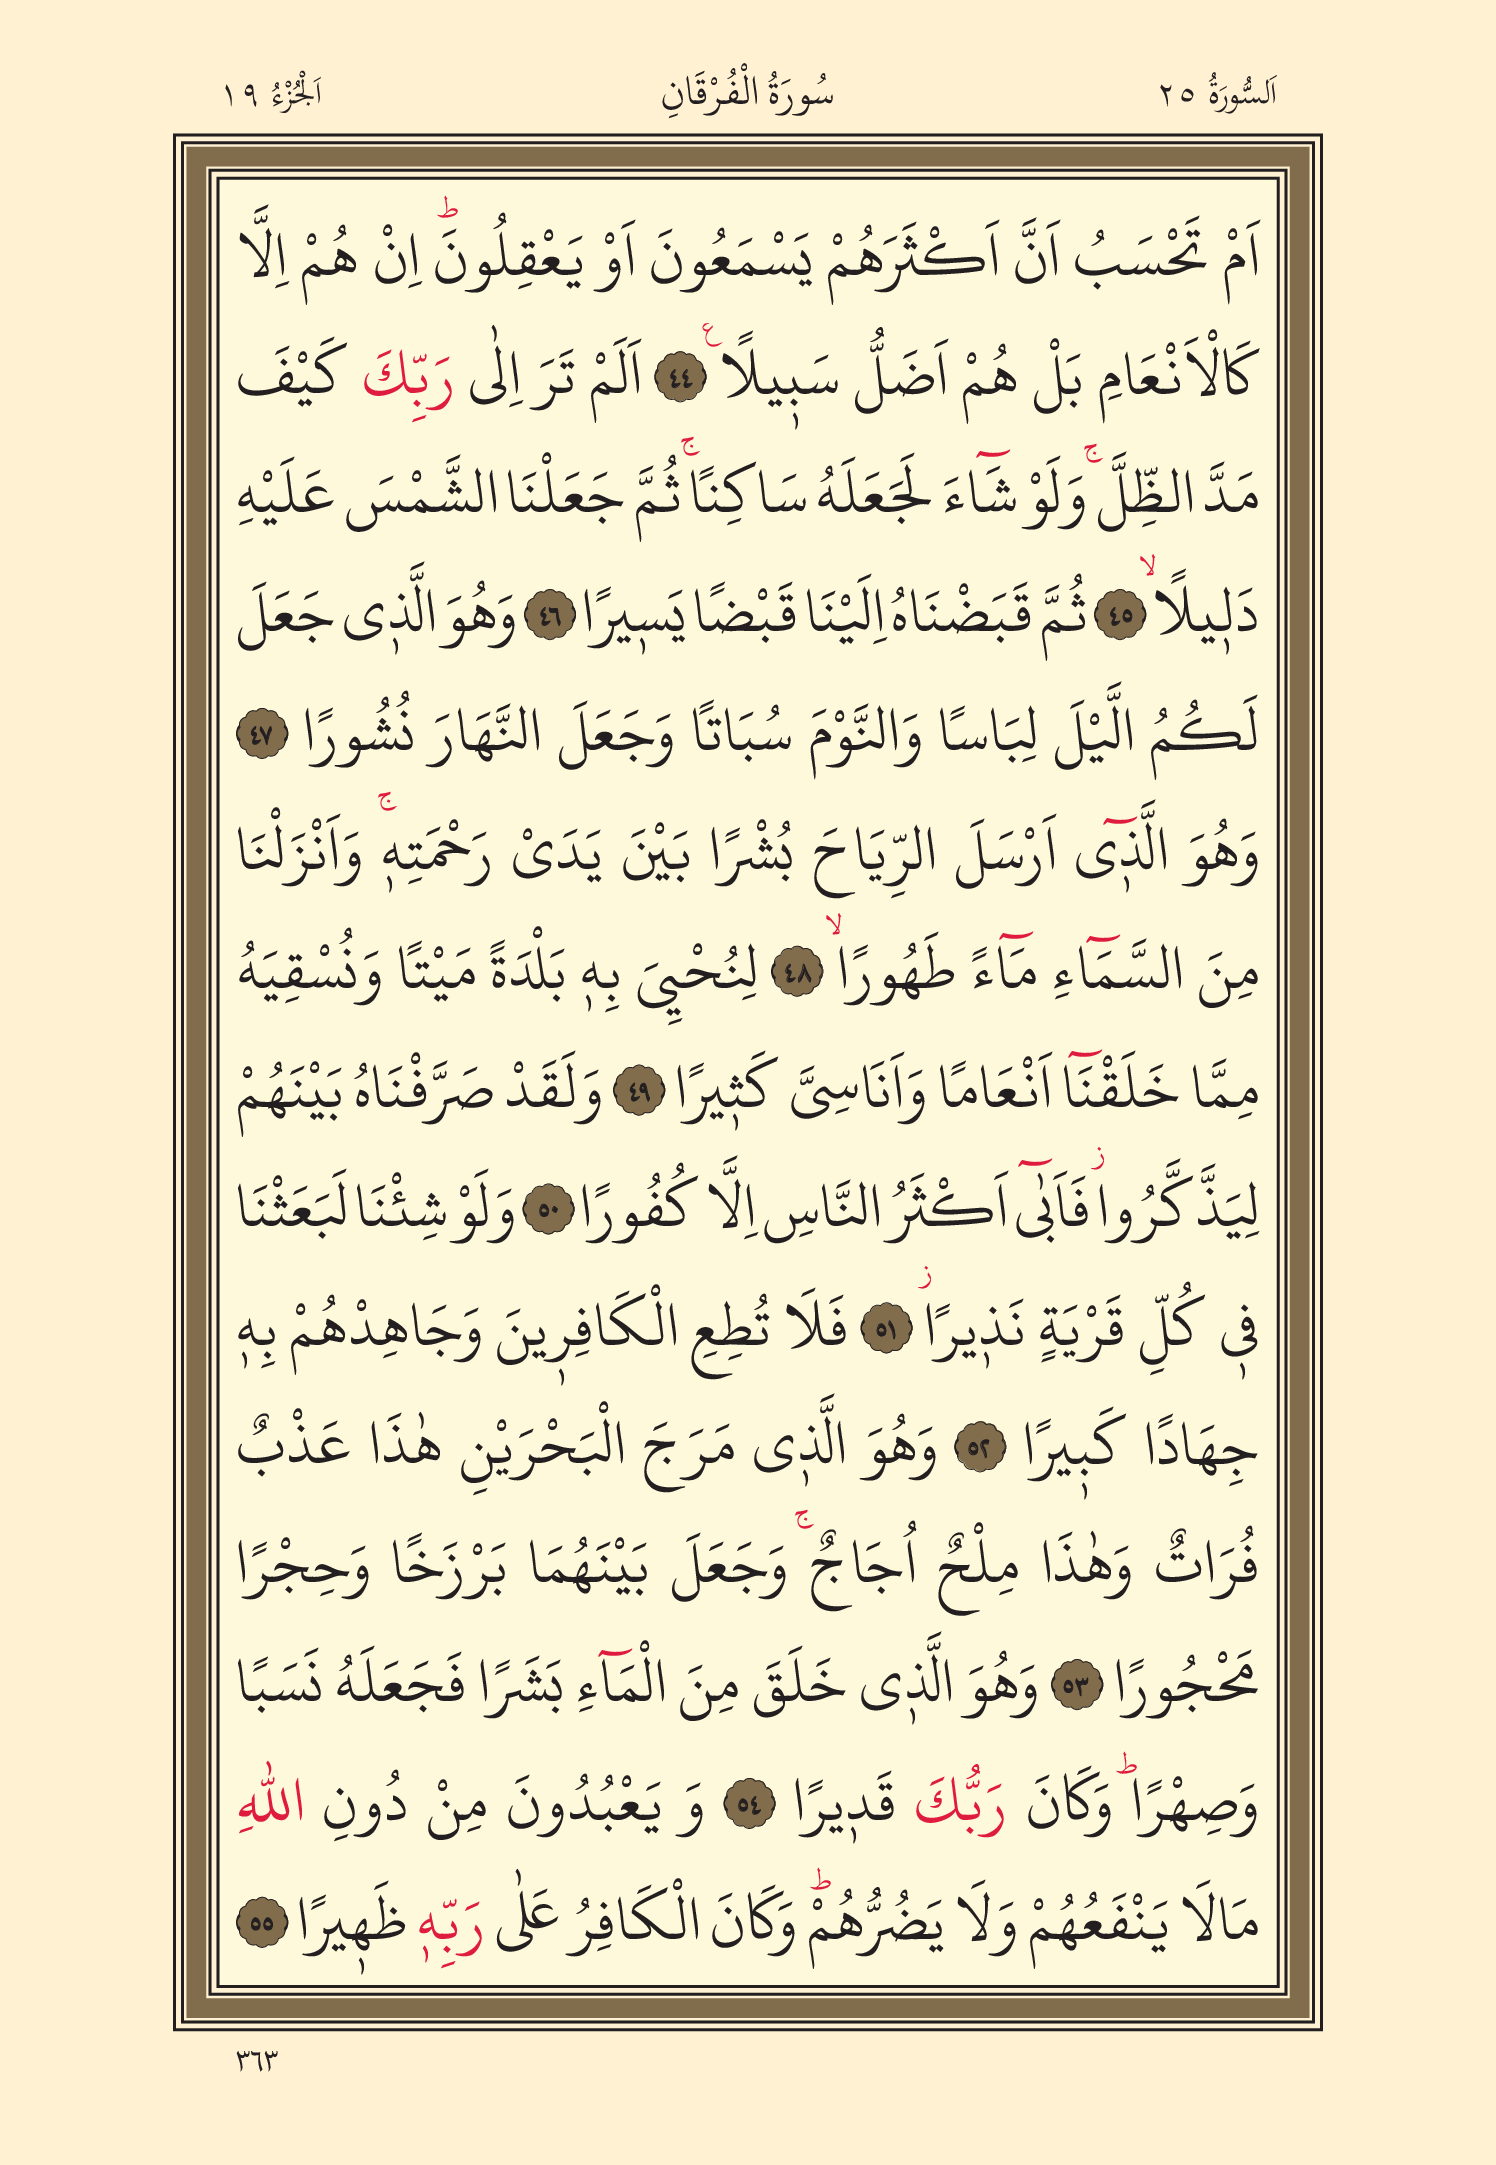 اَلسُّورَةُ ٢٥
سُورَةُ الْفُرْقَانِ
اَلْجُزْءُ ١٩
اَمْ تَحْسَبُ اَنَّ اَكْثَرَهُمْ يَسْمَعُونَ اَوْ يَعْقِلُونَۜ اِنْ هُمْ اِلَّا
كَالْاَنْعَامِ بَلْ هُمْ اَضَلُّ سَب۪يلًا۟ ﴿٤٤﴾ اَلَمْ تَرَ اِلٰى رَبِّكَ كَيْفَ
مَدَّ الظِّلَّۚ وَلَوْ شَٓاءَ لَجَعَلَهُ سَاكِنًاۚ ثُمَّ جَعَلْنَا الشَّمْسَ عَلَيْهِ
دَل۪يلًاۙ ﴿٤٥﴾ ثُمَّ قَبَضْنَاهُ اِلَيْنَا قَبْضًا يَس۪يرًا ﴿٤٦﴾ وَهُوَ الَّذ۪ى جَعَلَ
لَكُمُ الَّيْلَ لِبَاسًا وَالنَّوْمَ سُبَاتًا وَجَعَلَ النَّهَارَ نُشُورًا ﴿٤٧﴾
وَهُوَ الَّذ۪ٓى اَرْسَلَ الرِّيَاحَ بُشْرًا بَيْنَ يَدَىْ رَحْمَتِه۪ۚ وَاَنْزَلْنَا
مِنَ السَّمَٓاءِ مَٓاءً طَهُورًاۙ ﴿٤٨﴾ لِنُحْيِيَ بِه۪ بَلْدَةً مَيْتًا وَنُسْقِيَهُ
مِمَّا خَلَقْنَٓا اَنْعَامًا وَاَنَاسِىَّ كَث۪يرًا ﴿٤٩﴾ وَلَقَدْ صَرَّفْنَاهُ بَيْنَهُمْ
لِيَذَّكَّرُواۘ فَاَبٰٓى اَكْثَرُ النَّاسِ اِلَّا كُفُورًا ﴿٥٠﴾ وَلَوْ شِئْنَا لَبَعَثْنَا
ف۪ى كُلِّ قَرْيَةٍ نَذ۪يرًاۘ ﴿٥١﴾ فَلَا تُطِعِ الْكَافِر۪ينَ وَجَاهِدْهُمْ بِه۪
جِهَادًا كَب۪يرًا ﴿٥٢﴾ وَهُوَ الَّذ۪ى مَرَجَ الْبَحْرَيْنِ هٰذَا عَذْبٌ
فُرَاتٌ وَهٰذَا مِلْحٌ اُجَاجٌۚ وَجَعَلَ بَيْنَهُمَا بَرْزَخًا وَحِجْرًا
مَحْجُورًا ﴿٥٣﴾ وَهُوَ الَّذ۪ى خَلَقَ مِنَ الْمَٓاءِ بَشَرًا فَجَعَلَهُ نَسَبًا
وَصِهْرًاۜ وَكَانَ رَبُّكَ قَد۪يرًا ﴿٥٤﴾ وَ يَعْبُدُونَ مِنْ دُونِ اللّٰهِ
مَالَا يَنْفَعُهُمْ وَلَا يَضُرُّهُمْۜ وَكَانَ الْكَافِرُ عَلٰى رَبِّه۪ ظَه۪يرًا ﴿٥٥﴾
٣٦٣